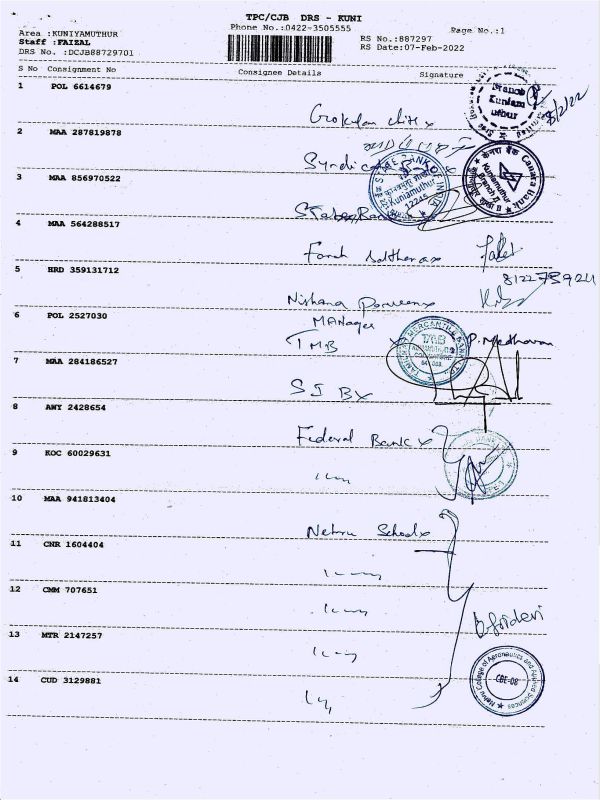 TPC/CJB DRS - KUNI
Phone No.:0422-3505555
Page No.:1
Area :KUNIYAMUTHUR
Staff :FAIZAL
DRS No. :DCJB88729701
RS No.:887297
RS Date:07-Feb-2022
S No Consignment No Consignee Details Signature
1 POL 6614679
Branch
Kuniam
uthur
2 MAA 287819878
STATE BANK OF INDIA
Kuniamuthur
12245
केनरा बैंक Canara Bank
Kuniamuthur
Branch II
3 MAA 856970522
4 MAA 564288517
Farah
5 HRD 359131712
Nishana Parveen
Manager
6 POL 2527030
TMB
P. Medhavan
7 MAA 284186527
SIB
8 AWY 2428654
Federal Bank
9 KOC 60029631
10 MAA 941813404
Nehru School
11 CNR 1604404
12 CMM 707651
13 MTR 2147257
Sridevi
14 CUD 3129881
Nehru College of Aeronautics and Applied Sciences
CBE-08